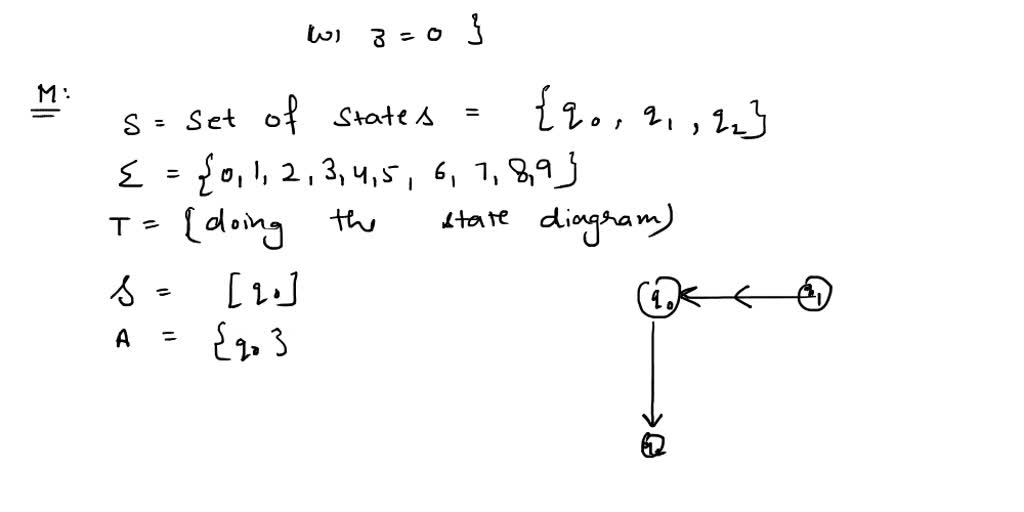 w, 3 = 0 }
M:
S = Set of states = {q0, q1, q2}
Σ = {0, 1, 2, 3, 4, 5, 6, 7, 8, 9}
T = (doing the state diagram)
s = [q0]
A = {q0}
q0
q1
q2